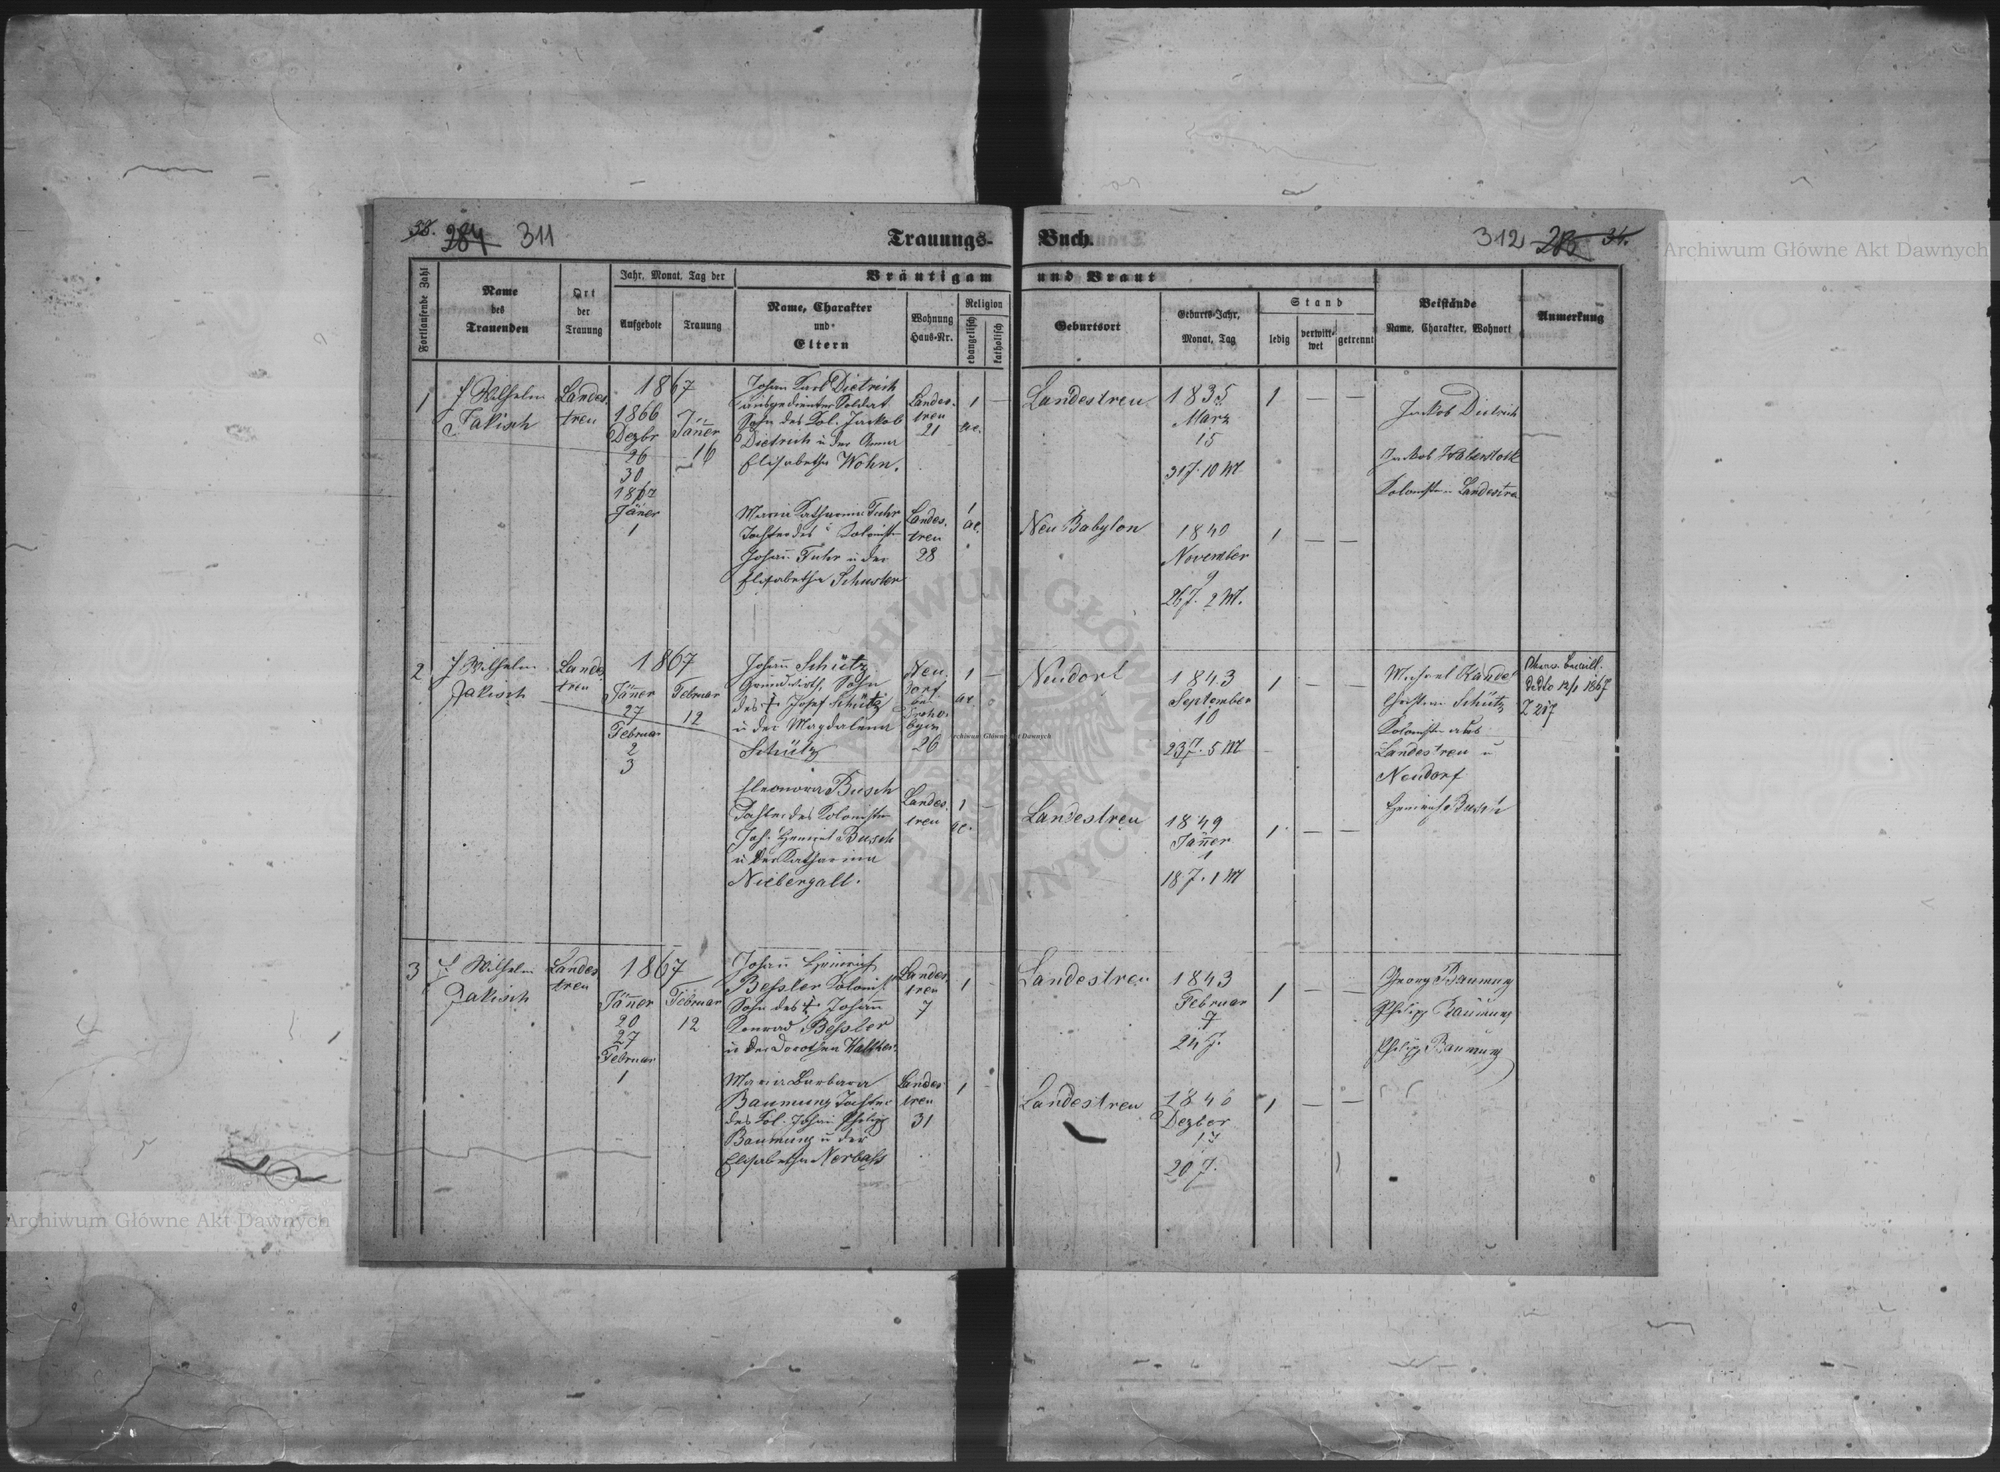 311
312
Trauungs-
Buch.
Fortlaufende Zahl
Name
des
Trauenden
Ort
der
Trauung
Jahr, Monat, Tag der
Aufgebote
Trauung
Bräutigam
und Braut
Name, Charakter
und
Eltern
Wohnung
Haus-Nr.
Religion
evangelisch
katholisch
Geburtsort
Geburts-Jahr,
Monat, Tag
Stand
ledig
verwitt-
wet
getrennt
Beistände
Name, Charakter, Wohnort
Anmerkung
1
J Wilhelm
Jakisch
Landes
treu
1867
1866
Dezbr
26
30
1867
Jäner
1
Jäner
16
Johann Karl Dietrich
ausgedienter Soldat
Sohn des Kol. Jackob
Dietrich u der Anna
Elisabetha Wohn.
Landes.
treu
21
1
Landestreu
1835
März
15
31 J. 10 M
1
Jackob Dietrich
Landestreu
Maria Katharina Fuhr
Tochter des Kolonisten
Johann Fuhr u der
Elisabetha Schuster
Landes.
treu
28
1
Neu Babylon
1840
November
9
26 J. 2 M.
1
2
J Wilhelm
Jakisch
Landes
treu
1867
Jänner
27
Februar
2
3
Februar
12
Johann Schütz
Grundwirth, Sohn
des † Josef Schütz
u der Magdalena
Schütz
Neu
dorf
26
1
Neudorf
1843
September
10
23 J. 5 M
1
Christian Schütz
Landestreu u
Neudorf
Heinrich Busch
dedto 12/1 1867
Z 217
Eleonora Busch
Tochter des Kolonisten
Joh. Heinrich Busch
u der Katharina
Niebergall.
Landes.
treu
1
Landestreu
1849
Jänner
1
18 J. 1 M
1
3
J Wilhelm
Jakisch
Landes
treu
1867
Jänner
20
27
Februar
1
Februar
12
Johann Heinrich
Beßler Kolonist
Sohn des † Johann
Konrad Beßler
u der Dorothea Walther
Landes
treu
7
1
Landestreu
1843
Februar
7
24 J.
1
Georg Baumung
Philipp Baumung
Philipp Baumung
Maria Barbara
Baumung Tochter
des Kol. Johann Philipp
Baumung u der
Elisabetha Nerbaß
Landes
treu
31
1
Landestreu
1846
Dezber
17
20 J.
1
Archiwum Główne Akt Dawnych
Archiwum Główne Akt Dawnych
Archiwum Główne Akt Dawnych
ARCHIWUM GŁÓWNE AKT DAWNYCH